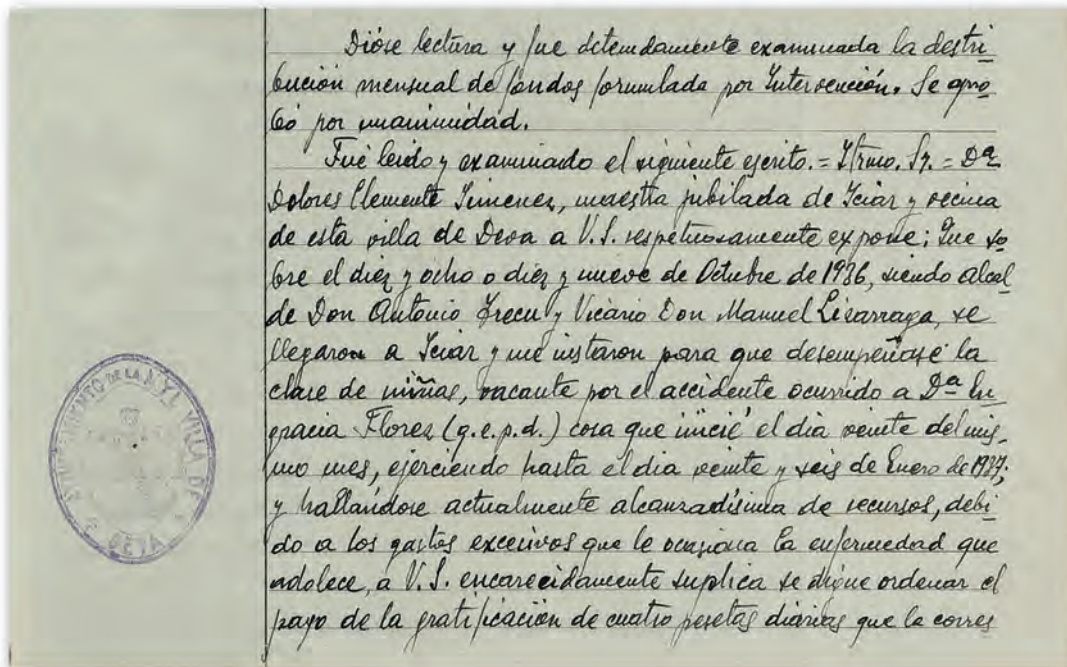 Dióse lectura y fue detendamente examinada la destri
bución mensual de fondos formulada por Intervención. Se apro
bó por unanimidad.
Fué leido y examinado el siguiente escrito. = Iltmo. Sr. = Dª
Dolores Clemente Jimenez, maestra jubilada de Iciar y vecina
de esta villa de Deva a V.S. respetuosamente expone; Que so
bre el diez y ocho o diez y nueve de Octubre de 1936, siendo alcal
de Don Antonio Trecu y Vicario Don Manuel Lisarraga, se
llegaron a Iciar y me instaron para que desempeñase la
clase de niñas, vacante por el accidente ocurrido a Dª En
gracia Florez (q.e.p.d.) cosa que inicié el dia veinte del mis
mo mes, ejerciendo hasta el dia veinte y seis de Enero de 1937;
y hallandose actualmente alcanzadísima de recursos, debi
do a los gastos excesivos que le ocasiona la enfermedad que
adolece, a V.S. encarecidamente suplica se digne ordenar el
pago de la gratificación de cuatro pesetas diarias que la corres
AYUNTAMIENTO DE LA M.N.Y.L. VILLA DE
DEVA